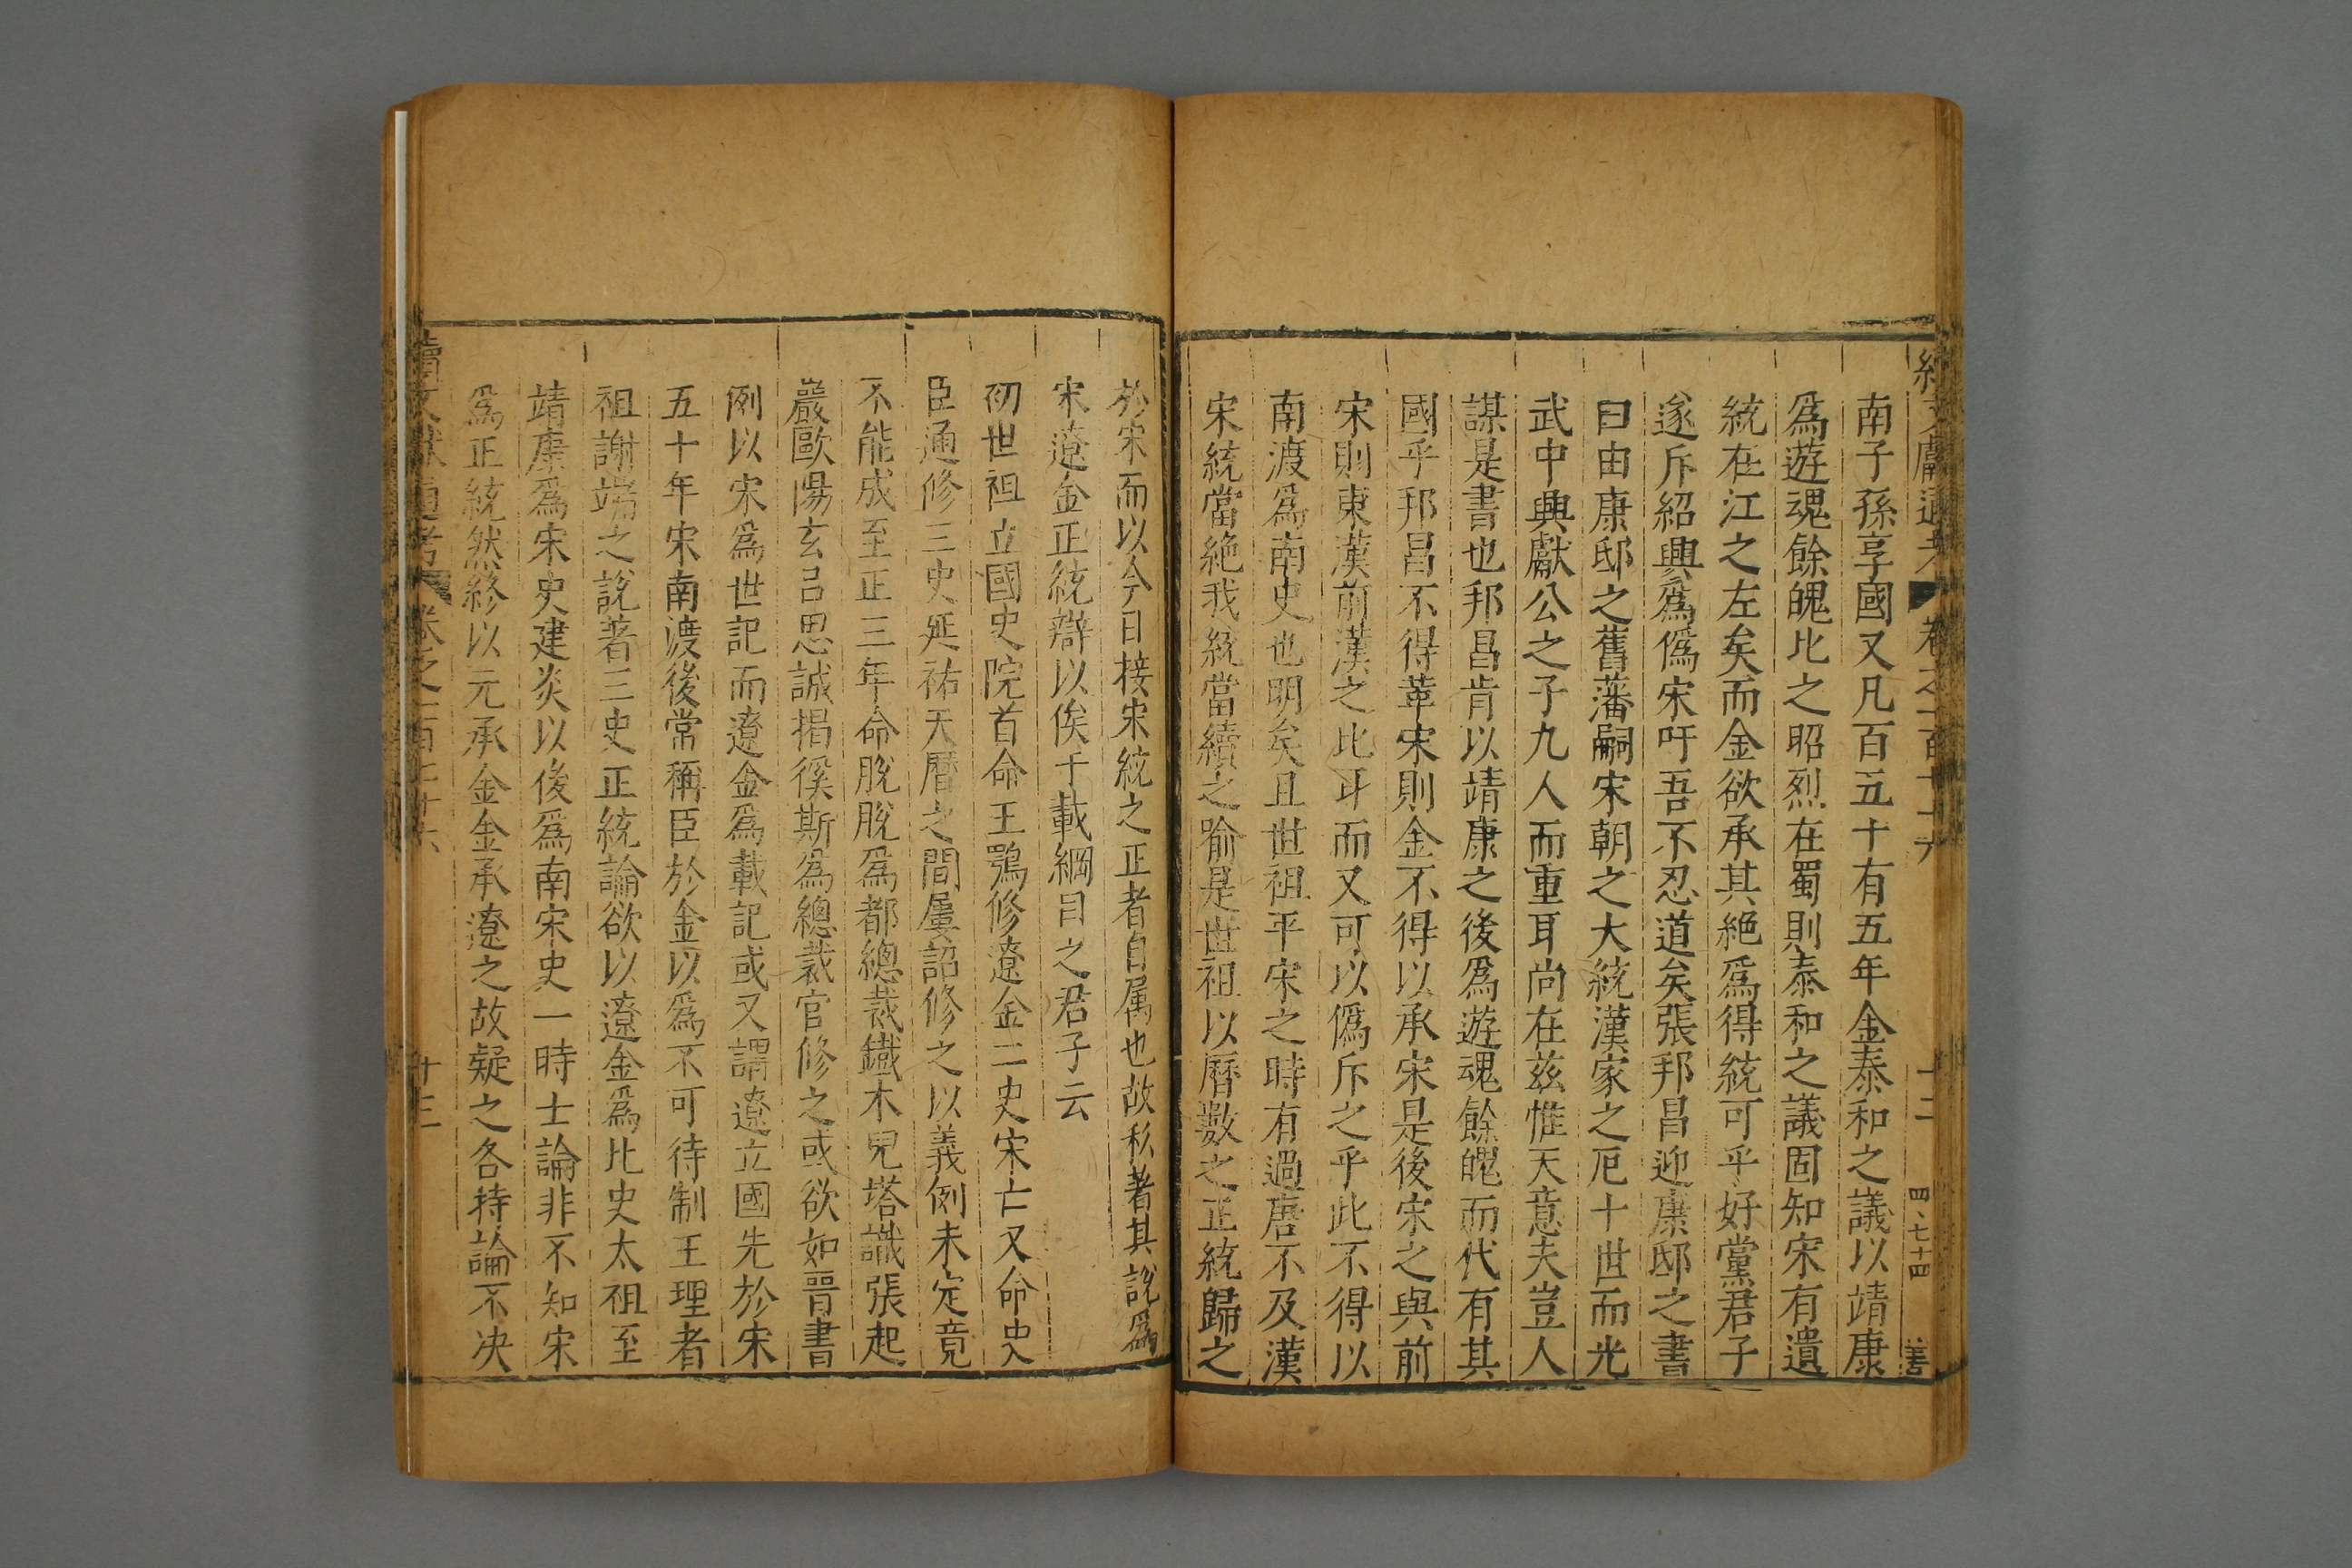 續文獻通考 卷之一百七十六 十二 四、七十四 善
南子孫享國又凡百五十有五年金泰和之議以靖康
爲遊魂餘魄比之昭烈在蜀則泰和之議固知宋有遺
統在江之左矣而金欲承其絶爲得統可乎好黨君子
遂斥紹興爲僞宋吁吾不忍道矣張邦昌迎康邸之書
曰由康邸之舊藩嗣宋朝之大統漢家之厄十世而光
武中興獻公之子九人而重耳尚在兹惟天意夫豈人
謀是書也邦昌肯以靖康之後爲遊魂餘魄而代有其
國乎邦昌不得革宋則金不得以承宋是後宋之與前
宋則東漢前漢之比耳而又可以僞斥之乎此不得以
南渡爲南史也明矣且世祖平宋之時有過唐不及漢
宋統當絶我統當續之喻是世祖以曆數之正統歸之
於宋而以今日接宋統之正者自属也故私著其説爲
宋遼金正統辯以俟千載綱目之君子云
初世祖立國史院首命王鶚修遼金二史宋亡又命史
臣通修三史延祐天曆之間屢詔修之以義例未定竟
不能成至正三年命脫脫爲都總裁鐵木兒塔識張起
巖歐陽玄吕思誠揭徯斯爲總裁官修之或欲如晉書
例以宋爲世記而遼金爲載記或又謂遼立國先於宋
五十年宋南渡後常稱臣於金以爲不可待制王理者
祖謝端之說著三史正統論欲以遼金爲北史太祖至
靖康爲宋史建炎以後爲南宋史一時士論非不知宋
爲正統然終以元承金金承遼之故疑之各持論不决
續文獻通考 卷之一百七十六 十三